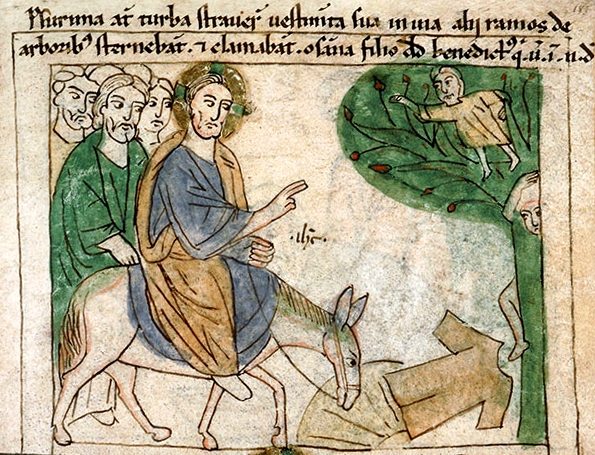 Plurima aū turba strauer̄ uestimīta sua in uia alij ramos de
arborib' sternebāt. ⁊ clamabāt. osāna filio dd̄ benedict' q. u. ī. n. d
.ihc̄.